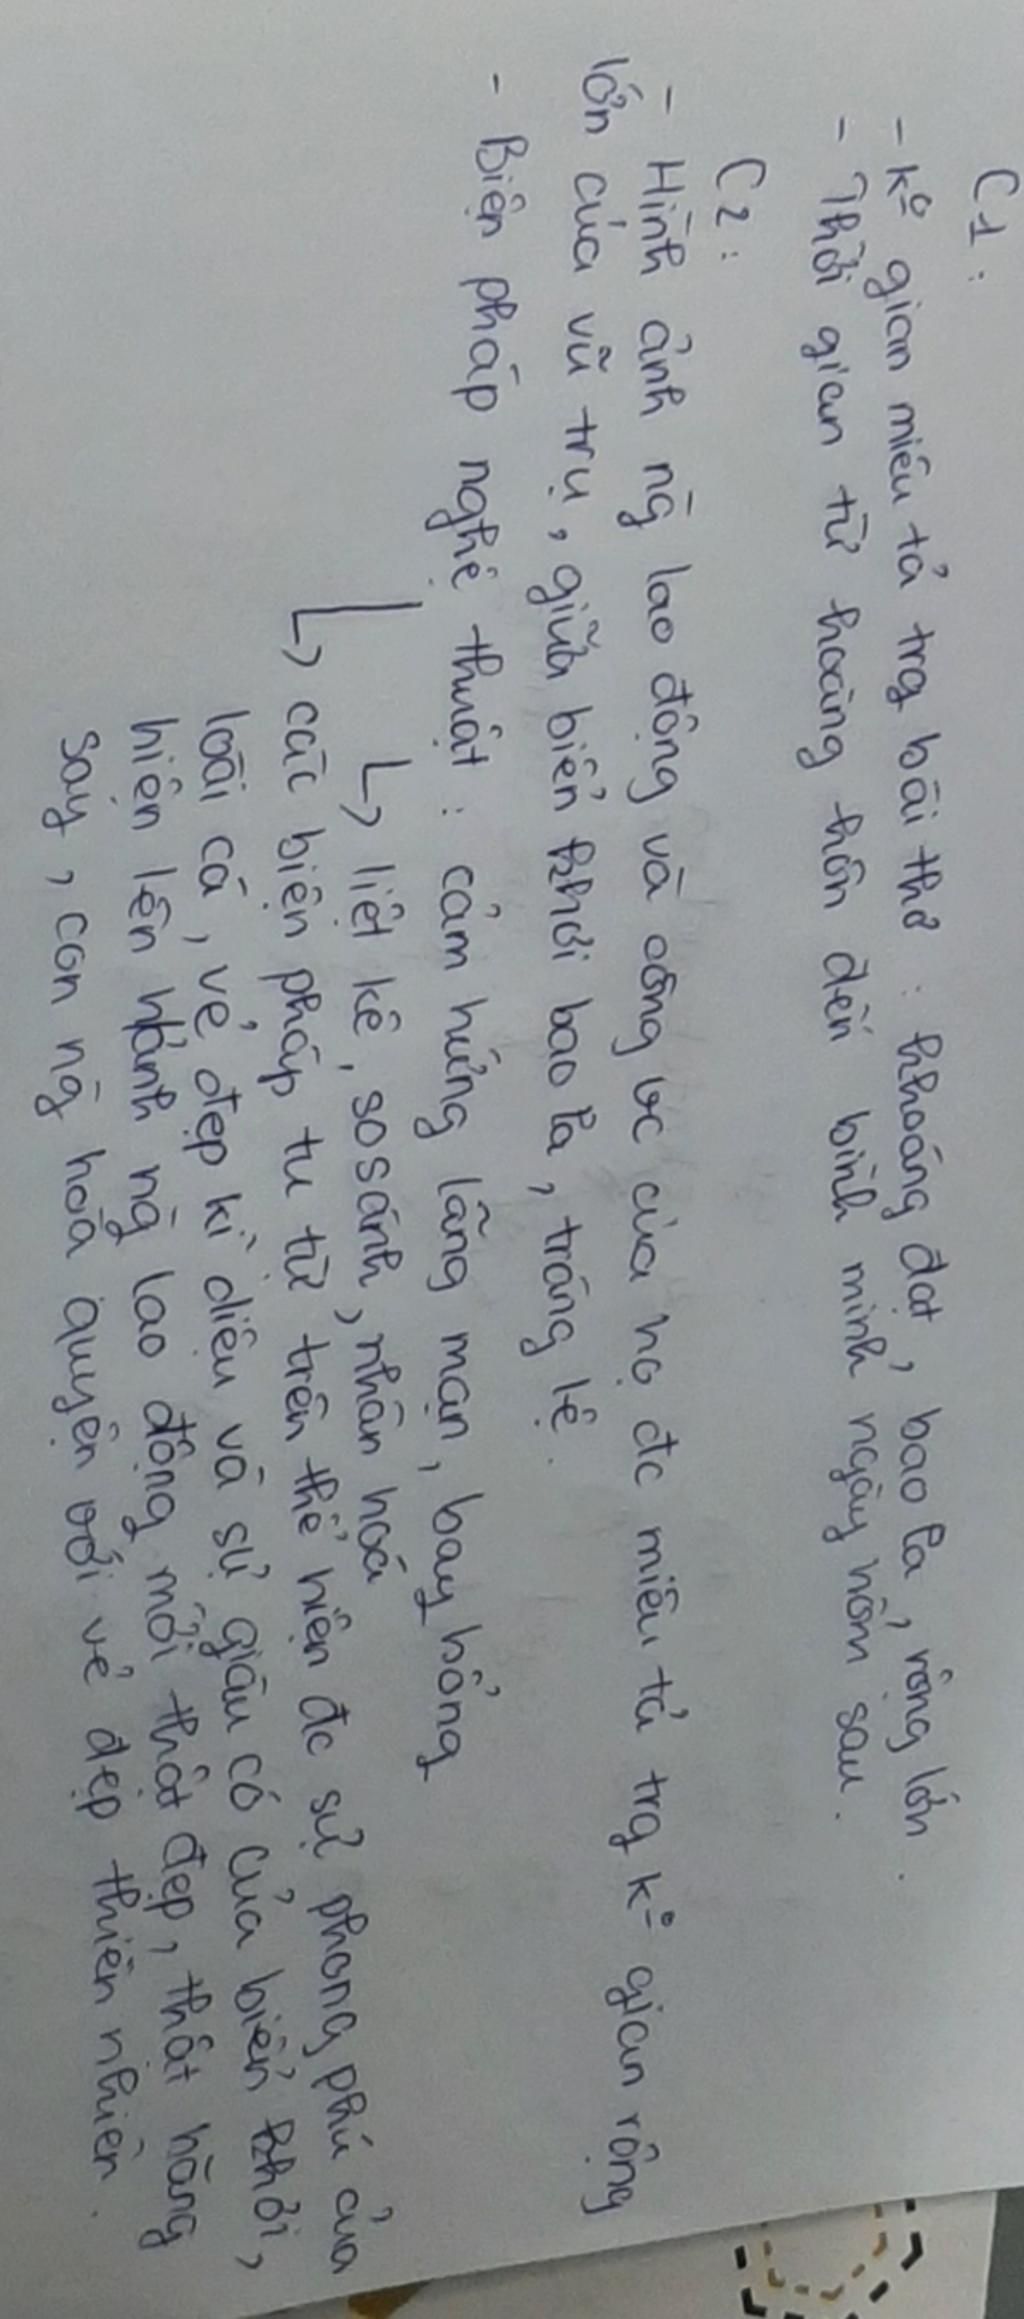 C1:
- k° gian miêu tả trg bài thơ : khoáng đạt, bao la, rộng lớn.
- Thời gian từ hoàng hôn đến bình minh ngày hôm sau.
C2:
- Hình ảnh ng̀ lao động và công vc của họ đc miêu tả trg k° gian rộng
lớn của vũ trụ, giữa biển khơi bao la, tráng lệ.
- Biện pháp nghệ thuật : cảm hứng lãng mạn, bay bổng
↳ liệt kê, so sánh, nhân hoá
↳ các biện pháp tu từ trên thể hiện đc sự phong phú của
loài cá, vẻ đẹp kì diệu và sự giàu có của biển khơi,
hiện lên hình ảnh ng̀ lao động mới thật đẹp, thật hăng
say, con ng̀ hoà quyện với vẻ đẹp thiên nhiên.